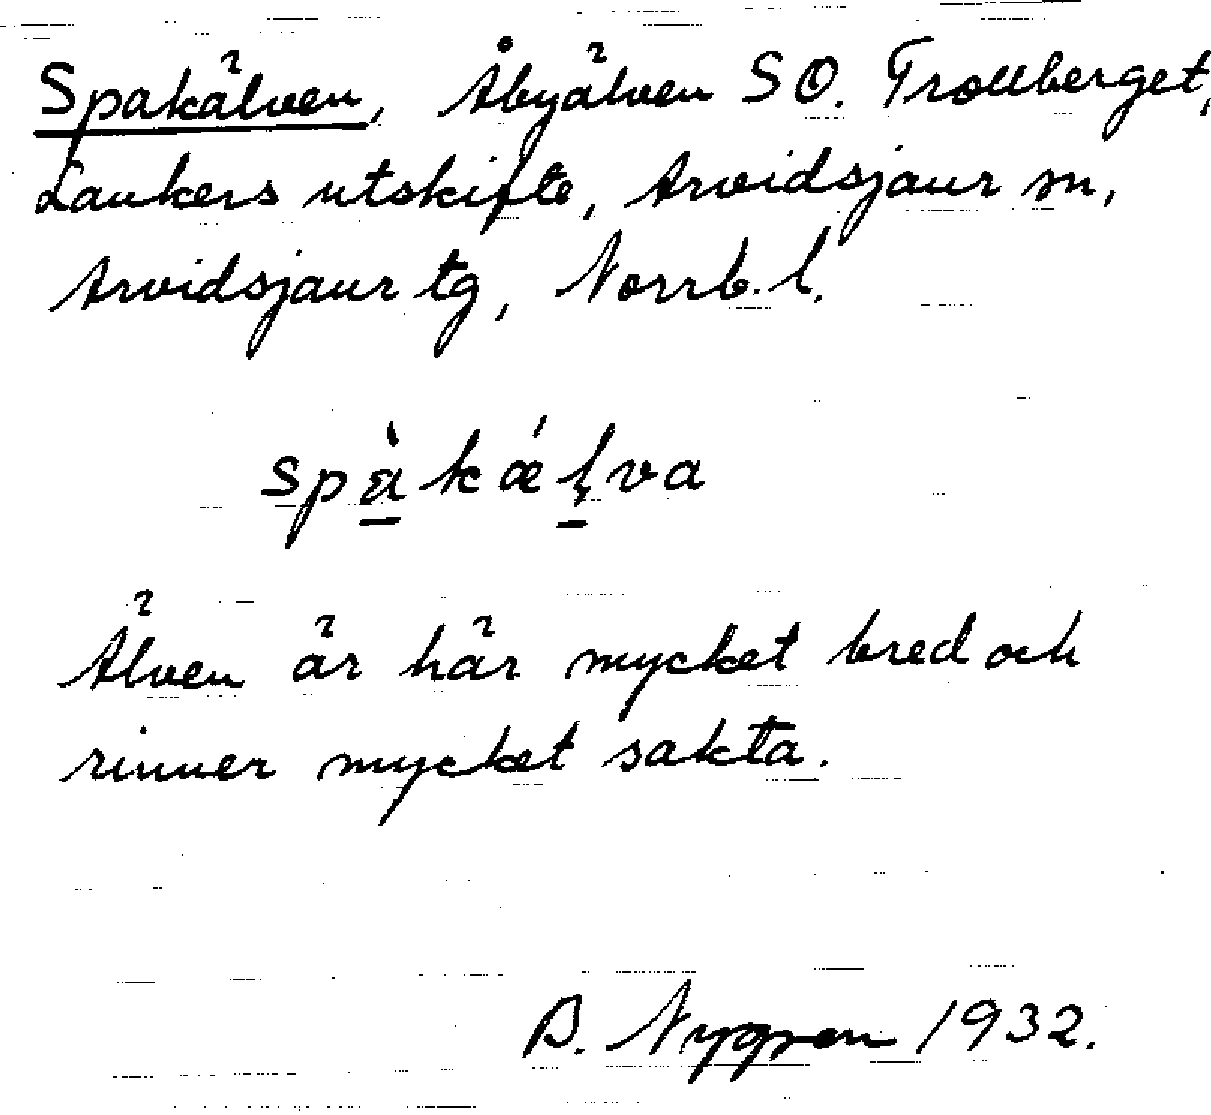 Spakälven, Åbyälven SO. Trollberget,
Laukers utskifte, Arvidsjaur sn,
Arvidsjaur tg, Norrb. l.
spàkǽl̥va
Älven är här mycket bred och
rinner mycket sakta.
B. Nygren 1932.